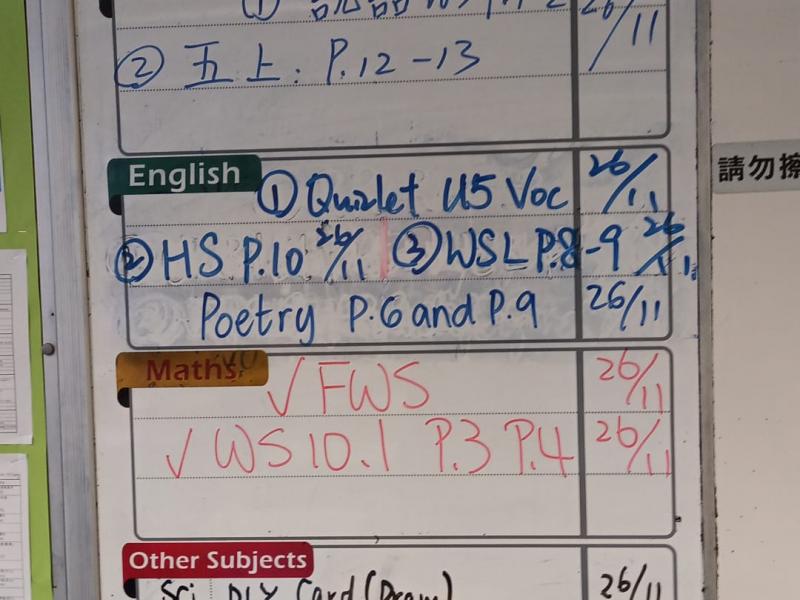 ① 26/11
② 五上. P.12-13
English
① Quizlet U5 Voc 26/11
② HS P.10 26/11 ③ WSL P.8-9 26/11
Poetry P.6 and P.9 26/11
請勿擦
Maths
√ FWS 26/11
√ WS 10.1 P.3 P.4 26/11
Other Subjects
Sci DIY Card (Draw) 26/11